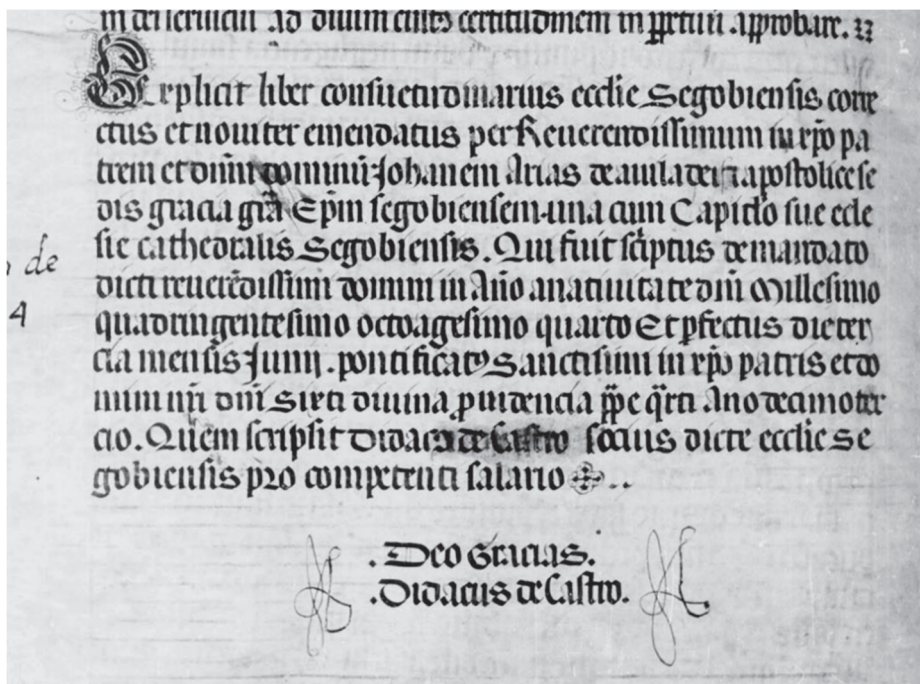 ad diuinum certitudinem in approbare.
Explicit liber consuetudinarius ecclie Segobiensis corre
ctus et nouiter emendatus per Reuerendissimum in xpo pa
trem et dnm dominum Johanem Arias de auila dei et apostolice se
dis gracia Epm segobiensem una cum Capitlo sue ecle
sie cathedralis Segobiensis. Qui fuit scriptus de mandato
dicti reuerēdissimi domini in Año anatiuitate dñi Millesimo
quadringentesimo octoagesimo quarto Et pfectus die ter
cia mensis Junij. pontificatꝯ Sanctisimi in xpo patris et do
mini nri dñi Sixti diuina ꝓuidencia ppe qrti Anodecimoter
cio. Quem scripsit didacꝯ de Castro socius dicte ecclie Se
gobiensis pro competenti salario
. Deo Gracias.
.Didacus de Castro.
de
4